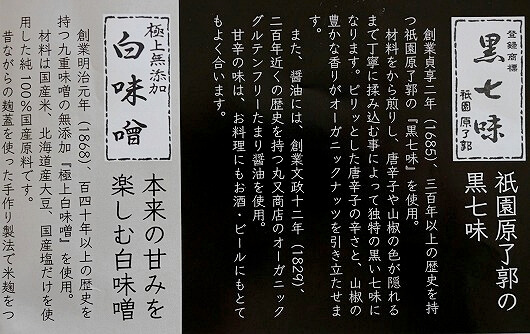 登録商標
黒七味
祇園 原了郭
祇園原了郭の
黒七味
創業貞享二年（1685）、三百年以上の歴史を持
つ祇園原了郭の『黒七味』を使用。
材料をから煎りし、唐辛子や山椒の色が隠れる
まで丁寧に揉み込む事によって独特の黒い七味に
なります。ピリッとした唐辛子の辛さと、山椒の
豊かな香りがオーガニックナッツを引き立たせま
す。
また、醤油には、創業文政十二年（1829）、
二百年近くの歴史を持つ丸又商店のオーガニック
グルテンフリーたまり醤油を使用。
甘辛の味は、お料理にもお酒・ビールにもとて
もよく合います。
極上無添加
白味噌
本来の甘みを
楽しむ白味噌
創業明治元年（1868）、百四十年以上の歴史を
持つ九重味噌の無添加『極上白味噌』を使用。
材料は国産米、北海道産大豆、国産塩だけを使
用した純100％国産原料です。
昔ながらの麹蓋を使った手作り製法で米麹をつ